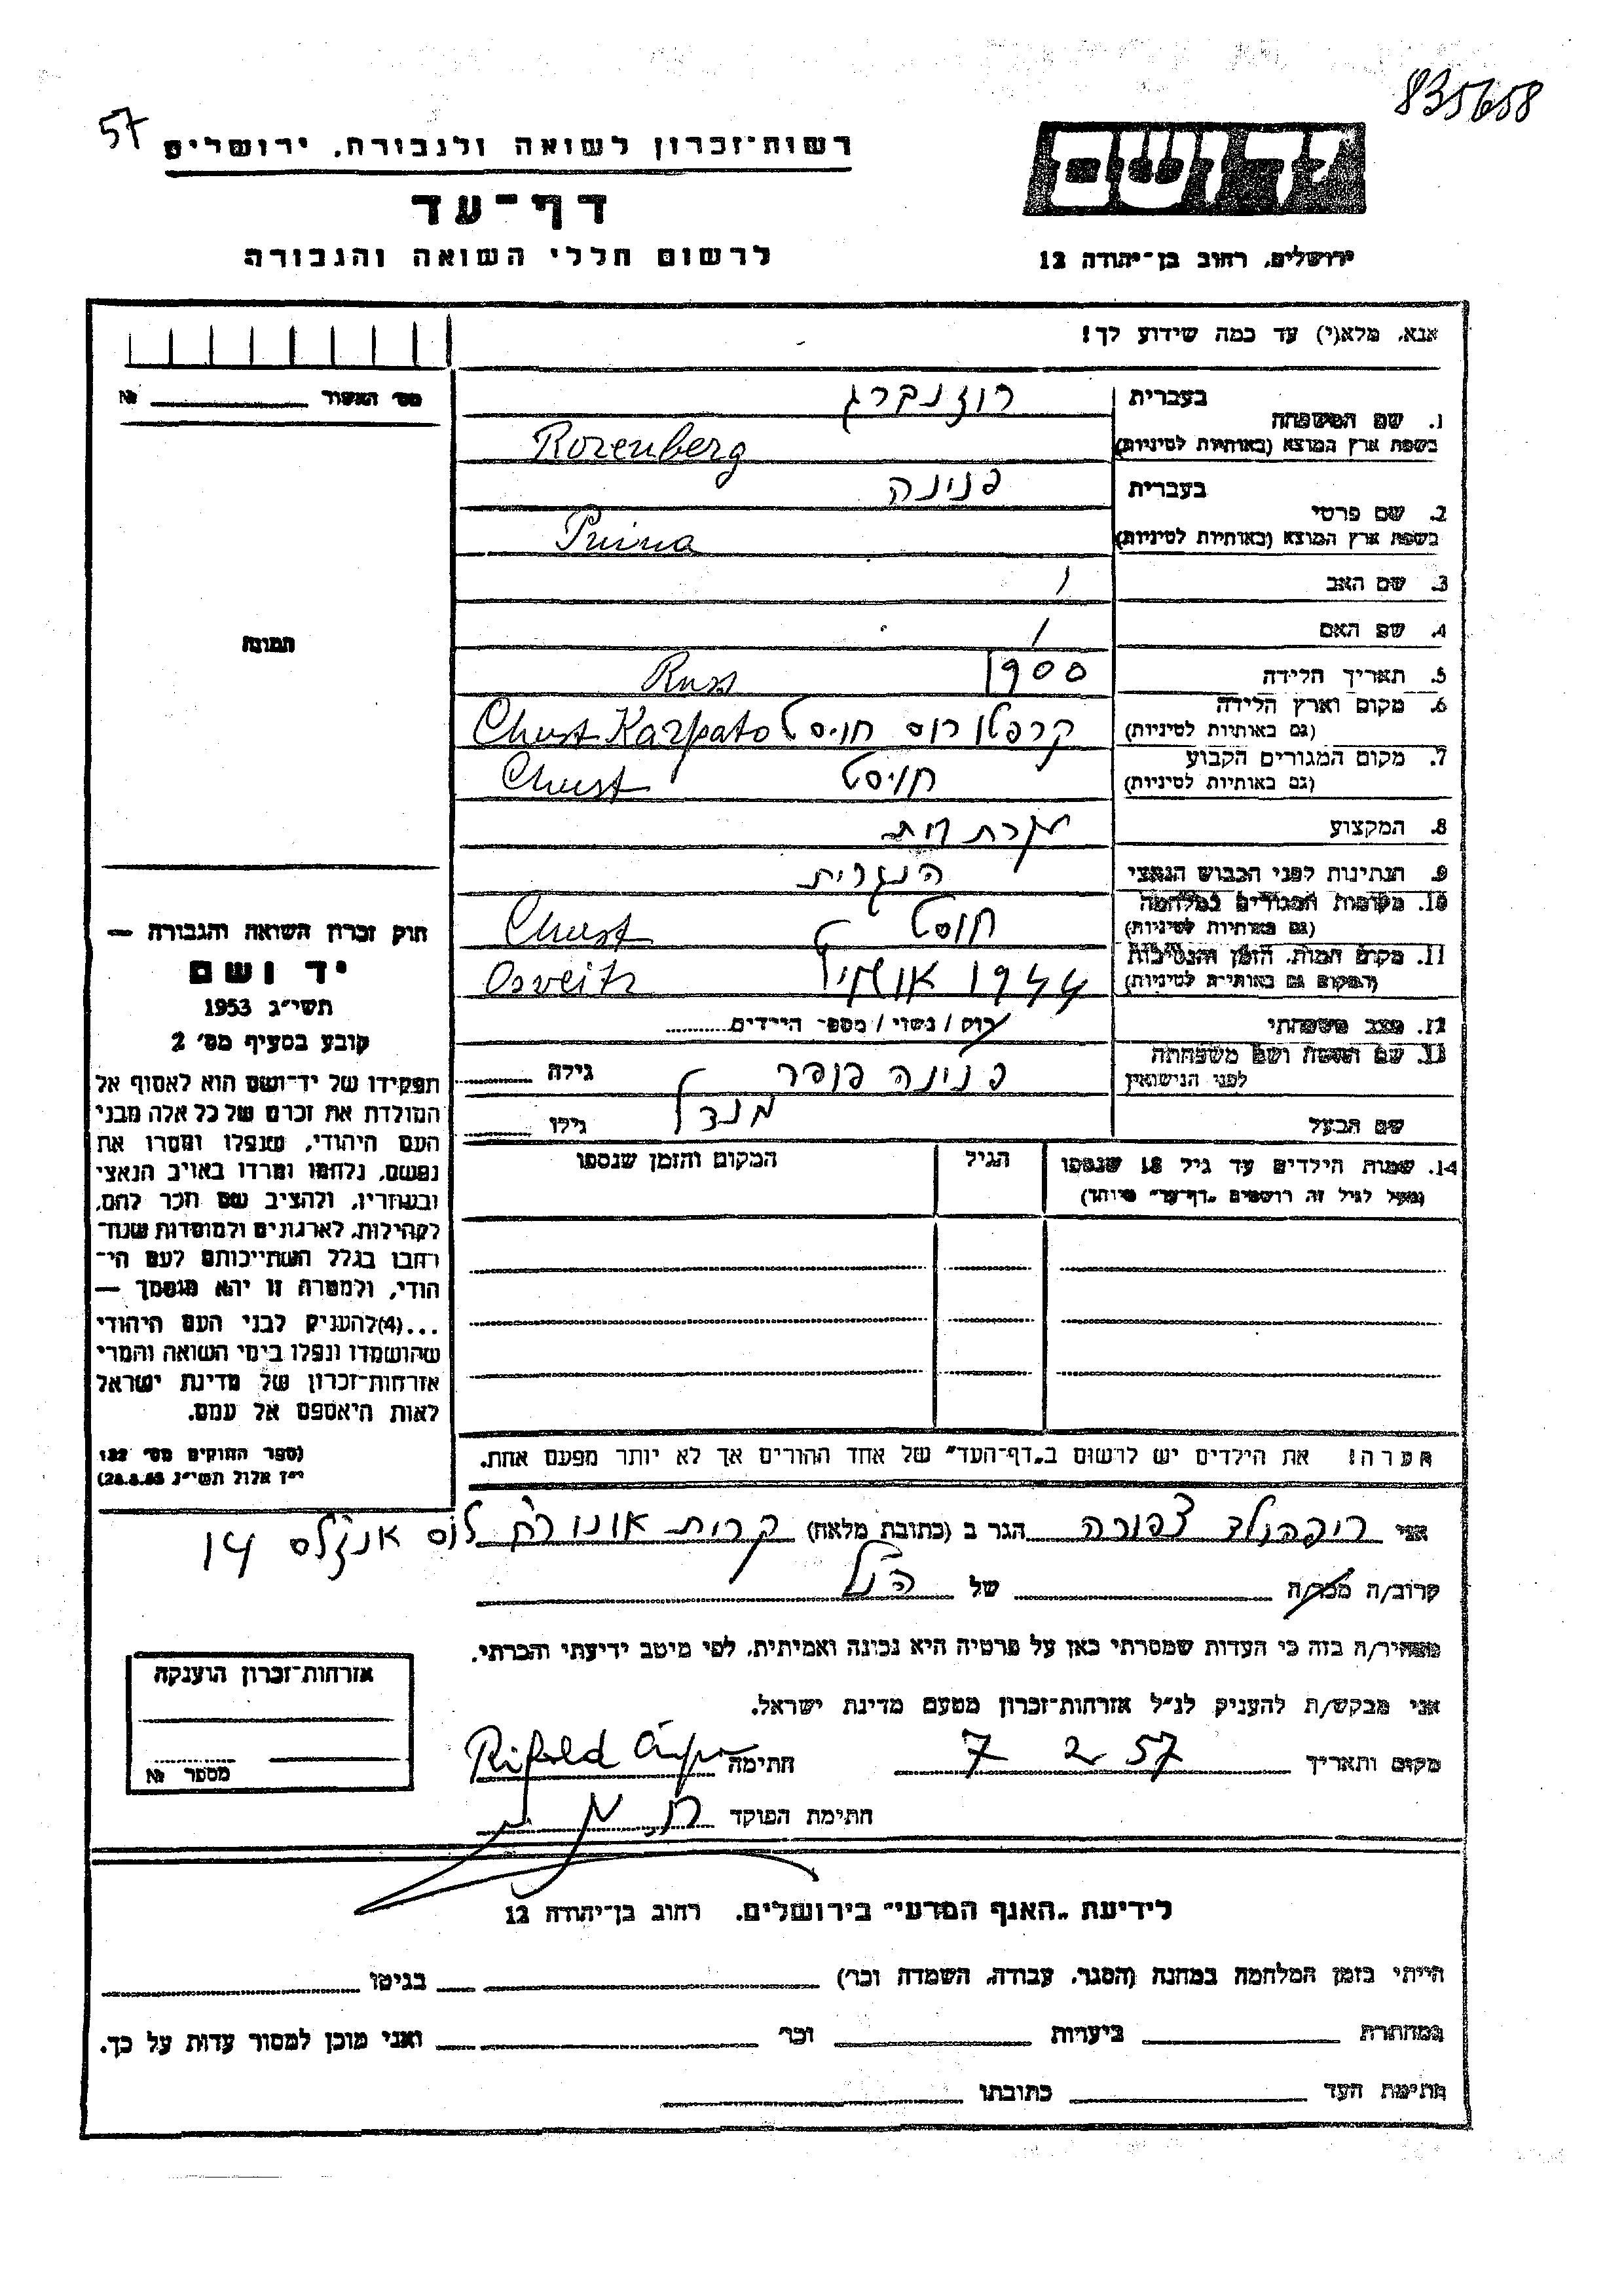 835658
57
רשות־זכרון לשואה ולגבורה, ירושלים
דף־עד
לרשום חללי השואה והגבורה
ירושלים, רחוב בן־יהודה 12
אנא, מלא(י) עד כמה שידוע לך!
מס' האשור №
1. שם המשפחה
בעברית רוזנברג
בשפת ארץ המוצא (באותיות לטיניות) Rozenberg
2. שם פרטי
בעברית פנינה
בשפת ארץ המוצא (באותיות לטיניות) Pnina
3. שם האב /
4. שם האם /
5. תאריך הלידה 1900
6. מקום וארץ הלידה (גם באותיות לטיניות) קרפטו רוס חוסט Chust Karpato Russ
7. מקום המגורים הקבוע (גם באותיות לטיניות) חוסט Chust
8. המקצוע עקרת בית
9. הנתינות לפני הכבוש הנאצי הונגרית
10. מקומות המגורים במלחמה (גם באותיות לטיניות) חוסט Chust
11. מקום המות, הזמן והנסיבות (המקום גם באותיות לטיניות) 1944 Osveitz
12. מצב משפחתי רוק / נשוי / מספר הילדים
13. שם האשה ושם משפחתה לפני הנישואין פנינה פופר גילה
שם הבעל מנדל גילו
14. שמות הילדים עד גיל 18 שנספו
(מעל לגיל זה רושמים „דף־עד" מיוחד)
הגיל
המקום והזמן שנספו
הערה! את הילדים יש לרשום ב„דף־העד" של אחד ההורים אך לא יותר מפעם אחת.
תמונה
חוק זכרון השואה והגבורה —
יד ושם
תשי"ג 1953
קובע בסעיף מס' 2
תפקידו של יד־ושם הוא לאסוף אל
המולדת את זכרם של כל אלה מבני
העם היהודי, שנפלו ומסרו את
נפשם, נלחמו ומרדו באויב הנאצי
ובעוזריו, ולהציב שם וזכר להם,
לקהילות, לארגונים ולמוסדות שנח־
רבו בגלל השתייכותם לעם הי־
הודי, ולמטרה זו יהא מוסמך —
...(4)להעניק לבני העם היהודי
שהושמדו ונפלו בימי השואה והמרי
אזרחות־זכרון של מדינת ישראל
לאות היאספם אל עמם.
(ספר החוקים מס' 132
י"ז אלול תשי"ג 28.8.53)
אני ריפהולד צפורה הגר ב (כתובת מלאה) קרית אונו רח לוס אנג'לס 14
קרוב/ה מכר/ה של הנ"ל
מצהיר/ה בזה כי העדות שמסרתי כאן על פרטיה היא נכונה ואמיתית, לפי מיטב ידיעתי והכרתי.
אני מבקש/ת להעניק לנ"ל אזרחות־זכרון מטעם מדינת ישראל.
מקום ותאריך 7 2 57 חתימה
חתימת הפוקד
אזרחות־זכרון הוענקה
מספר №
לידיעת „האגף המדעי" בירושלים, רחוב בן־יהודה 12
הייתי בזמן המלחמה במחנה (הסגר, עבודה, השמדה וכו') בגיטו
במחתרת ביערות וכו' ואני מוכן למסור עדות על כך.
חתימת העד כתובתו